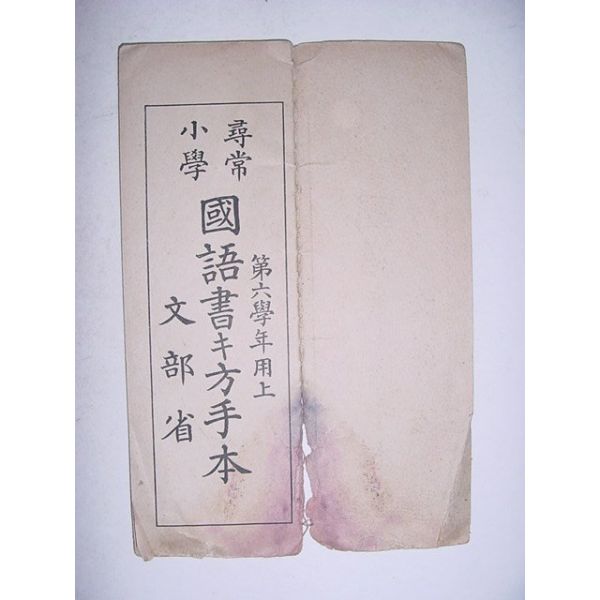 尋常
小學
國語書キ方手本
第六學年用上
文部省